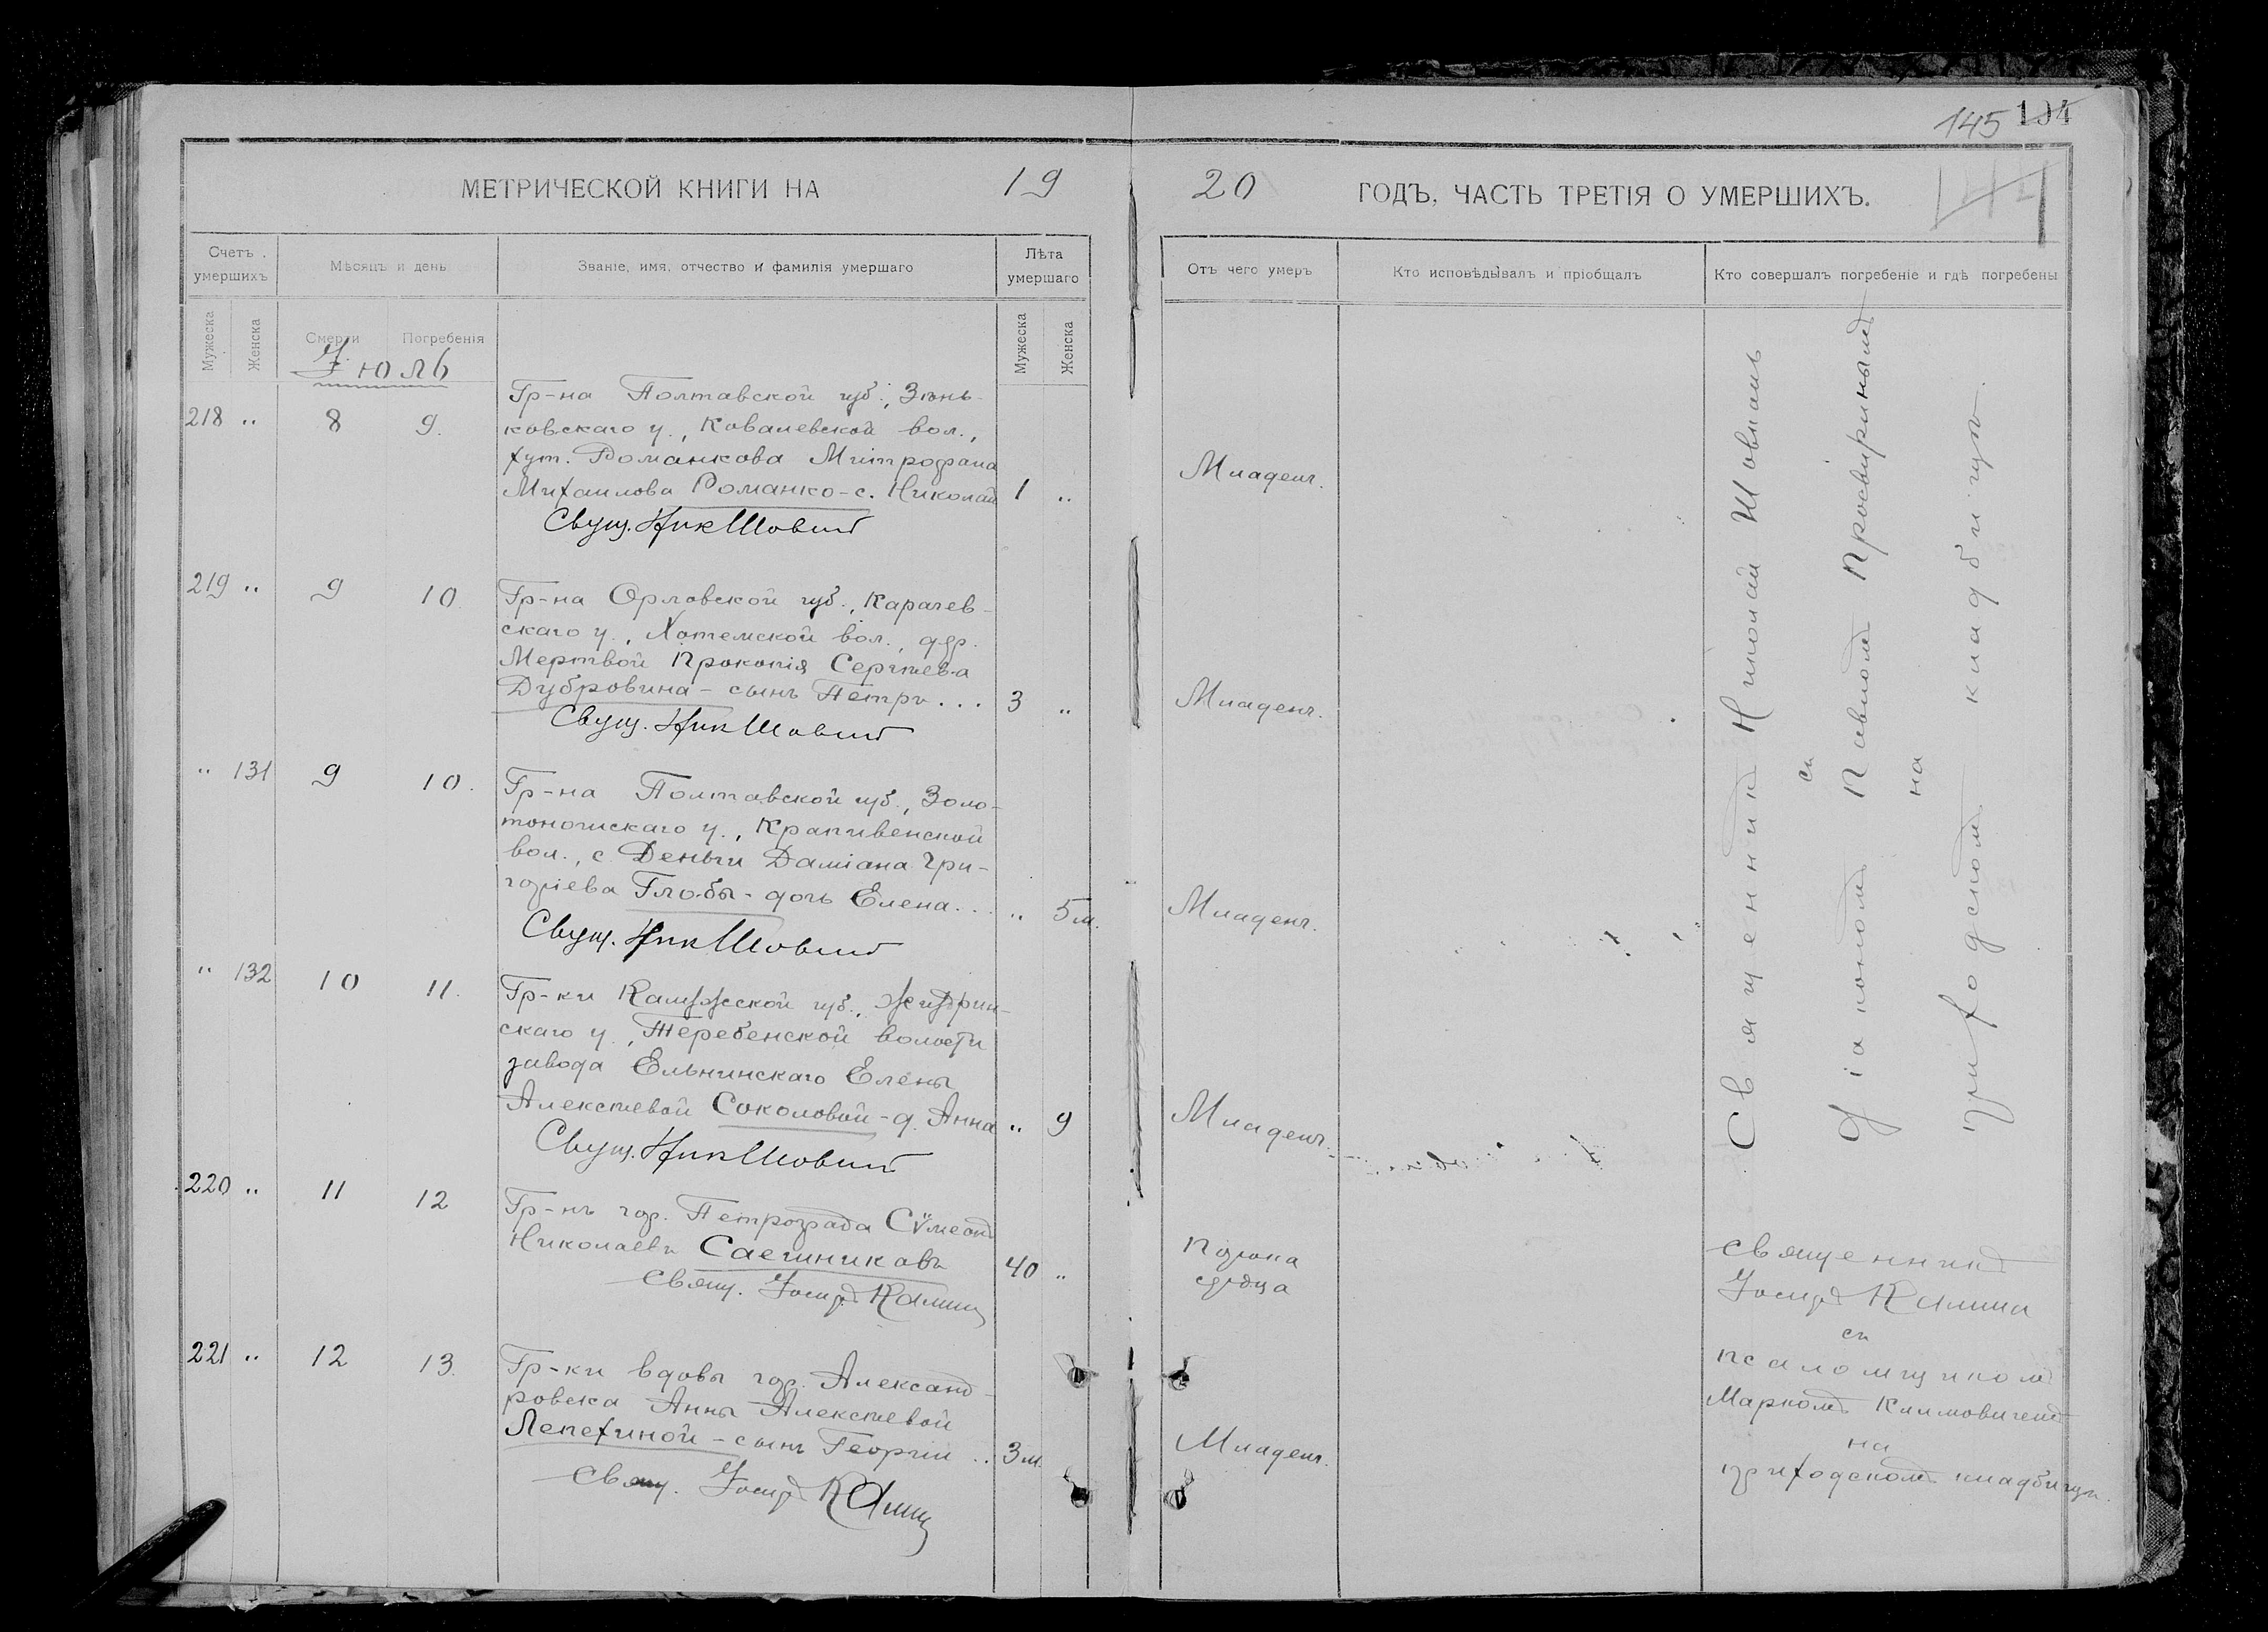 145 104
МЕТРИЧЕСКОЙ КНИГИ НА 19
20 ГОДЪ, ЧАСТЬ ТРЕТІЯ О УМЕРШИХЪ.
Счетъ умершихъ
Мѣсяцъ и день
Званіе, имя, отчество и фамилія умершаго
Лѣта умершаго
Отъ чего умеръ
Кто исповѣдывалъ и пріобщалъ
Кто совершалъ погребеніе и гдѣ погребены
Мужеска
Женска
Смерти
Погребенія
Мужеска
Женска
Іюль
218 " 8 9.
Гр-на Полтавской губ., Зѣнь-
ковскаго у., Ковалевской вол.,
хут. Романкова Митрофана
Михаилова Романко-с. Николай 1 "
Младенч.
Свящ. Ник Шовпил
219 " 9 10
Гр-на Орловской губ., Карачев-
скаго у., Хотемской вол., дер.
Мертвой Прокопія Сергѣева
Дубровина - сынъ Петръ... 3 "
Младенч.
Свящ. Ник Шовпил
" 131 9 10.
Гр-на Полтавской губ., Золо-
тоношскаго у., Крапивенской
вол., с. Деньги Даміана Гри-
горіева Глобы - дочь Елена... " 5м.
Младенч.
Свящ. Ник Шовпил
" 132 10 11.
Гр-ки Калужской губ., Жиздрин-
скаго у., Теребенской волости
завода Ельнинскаго Елены
Алексѣевой Соколовой - д. Анна " 9
Младенч.
Свящ. Ник Шовпил
Священникъ Николай Шовпилъ
съ
Діакономъ Павломъ Просвиринымъ
на
приходскомъ кладбищѣ.
220 " 11 12
Гр-нъ гор. Петрограда Сѵмеонъ
Николаевъ Саешниковъ 40 "
Свящ. Іосифъ
Порока
сердца
Священникъ
Іосифъ
съ
псаломщикомъ
Маркомъ Климовичемъ
на
приходскомъ кладбищѣ.
221 " 12 13.
Гр-ки вдовы гор. Александ-
ровска Анны Алексѣевой
Лепехиной - сынъ Георгій .. 3м.
Младенч.
Свящ. Іосифъ